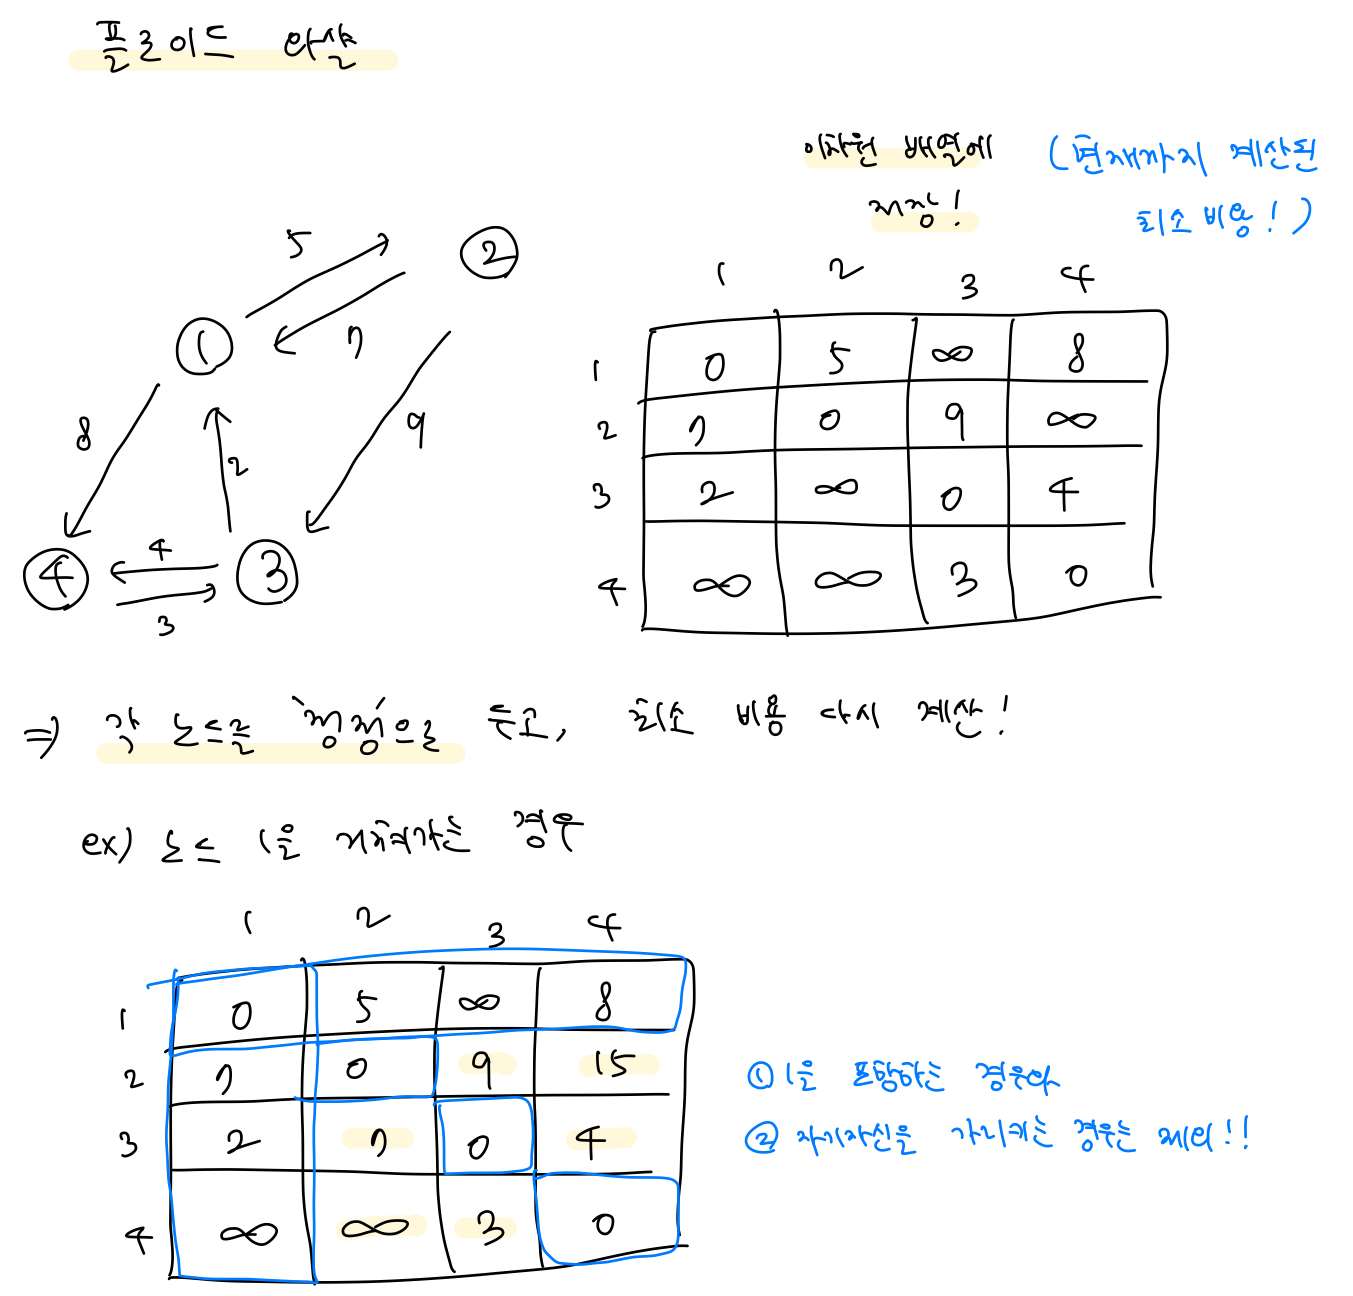 플로이드 와샬
이차원 배열에 (현재까지 계산된
저장! 최소 비용!)
5
2
1
7
8
9
2
4
4
3
3
1 2 3 4
1 0 5 ∞ 8
2 7 0 9 ∞
3 2 ∞ 0 4
4 ∞ ∞ 3 0
⇒ 각 노드를 '정점'으로 두고, 최소 비용 다시 계산!
ex) 노드 1을 거쳐가는 경우
1 2 3 4
1 0 5 ∞ 8
2 7 0 9 15
3 2 7 0 4
4 ∞ ∞ 3 0
① 1을 포함하는 경우와
② 자기자신을 가리키는 경우는 제외!!